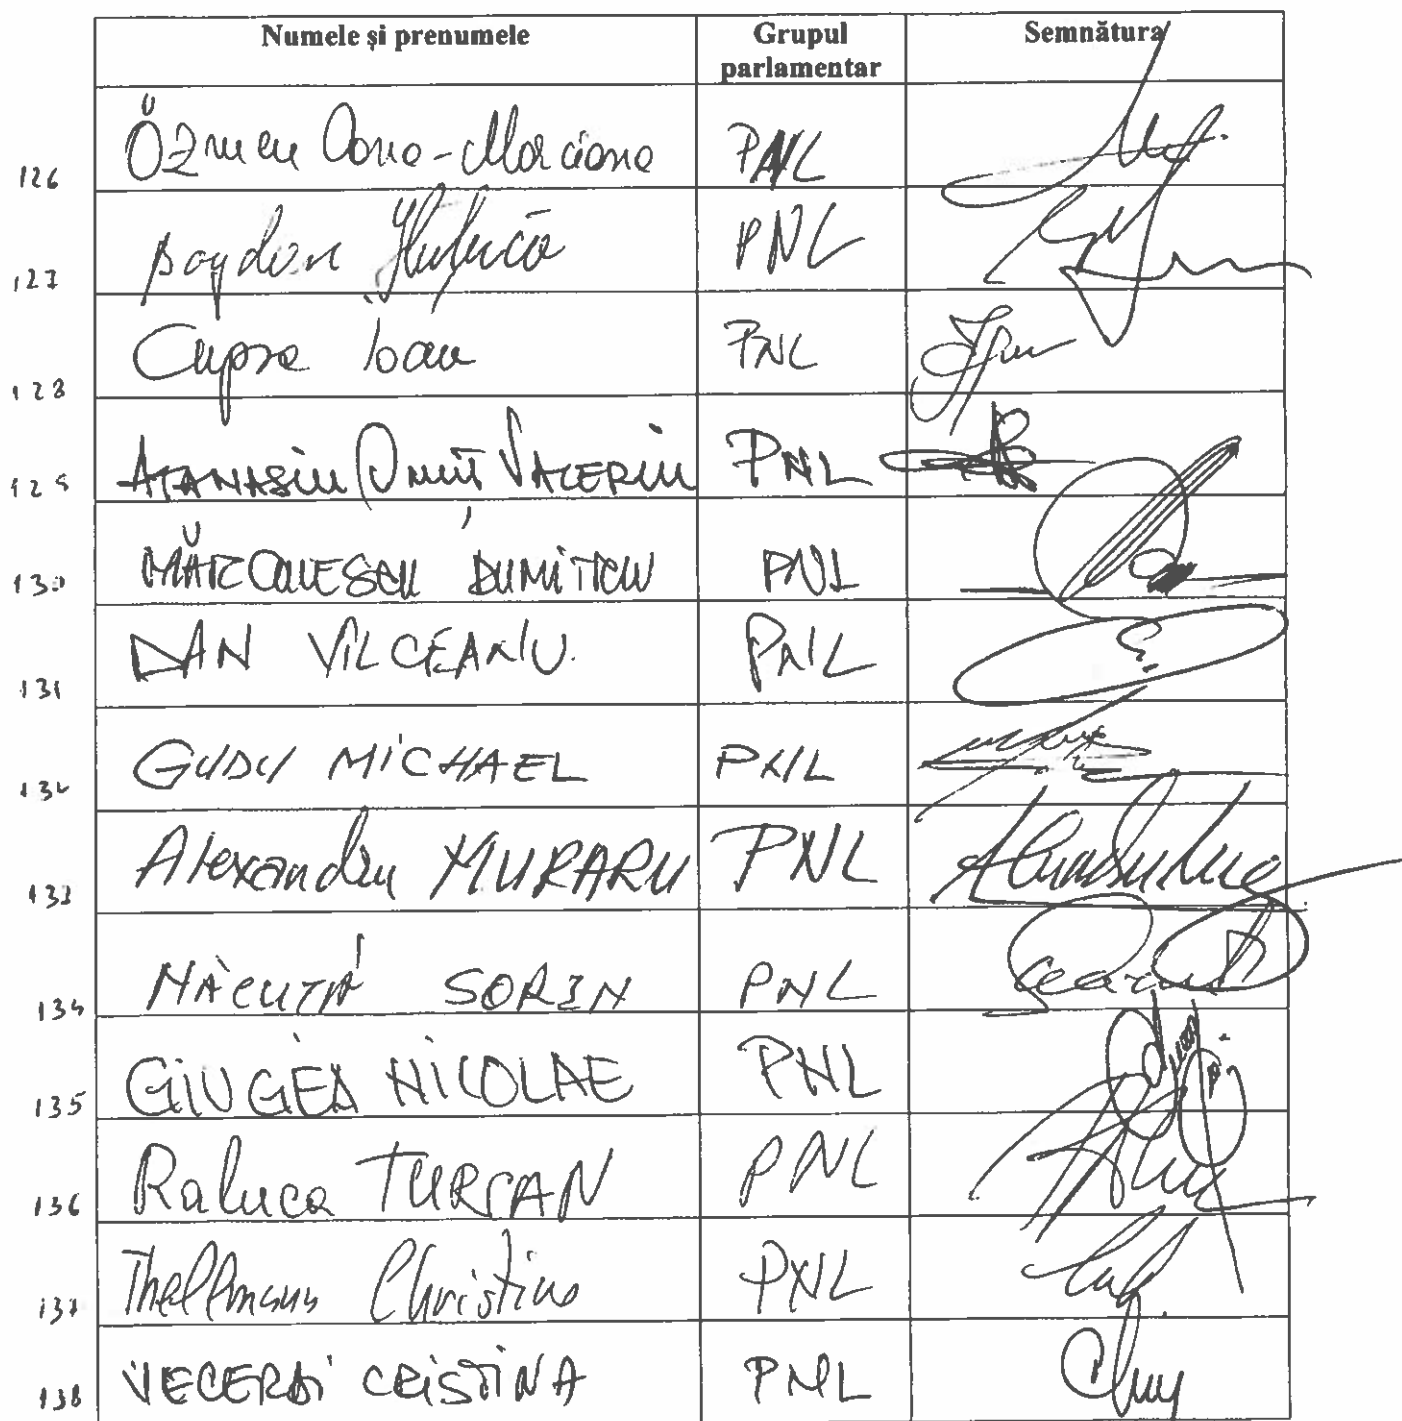 Numele și prenumele Grupul parlamentar Semnătura
126 Özmen Oana-Marciana PNL
127 Bogdan Huțucă PNL
128 Cupșa Ioan PNL
129 ATANASIU VALERIU PNL
130 DUMITRU PNL
131 DAN VÎLCEANU PNL
132 GUDU MICHAEL PNL
133 Alexandru MURARU PNL
134 NĂCUȚĂ SORIN PNL
135 GIUGEA NICOLAE PNL
136 Raluca TURCAN PNL
137 Thellmann Christine PNL
138 VECERDI CRISTINA PNL